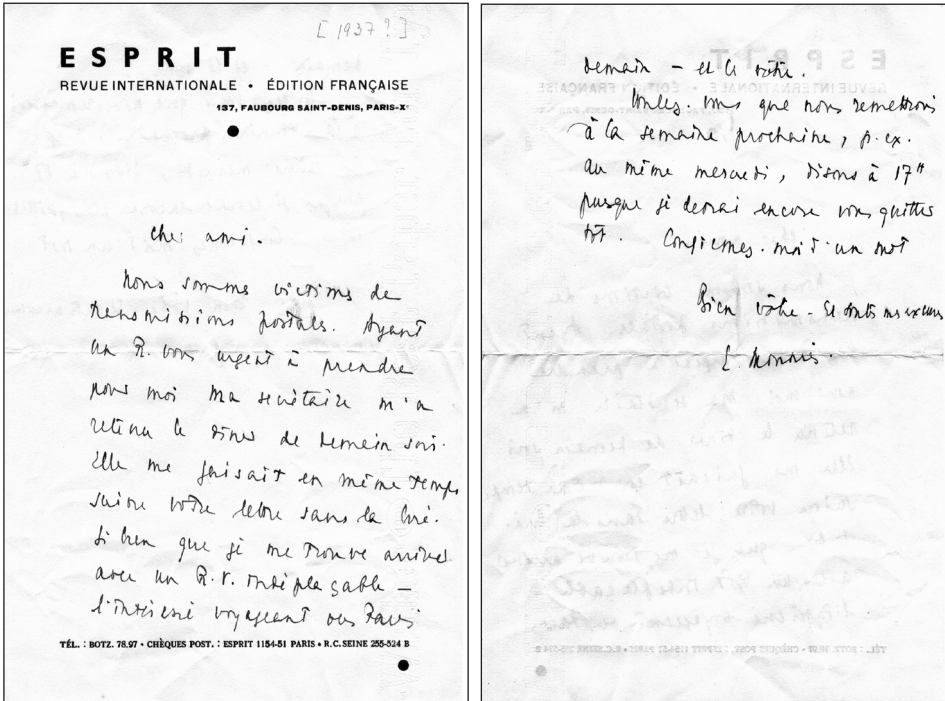 [1937?]
ESPRIT
REVUE INTERNATIONALE • ÉDITION FRANÇAISE
137, FAUBOURG SAINT-DENIS, PARIS-Xe
Cher ami.
Nous sommes victimes de
transmissions postales. Ayant
un R. vous urgent à prendre
pour moi ma secrétaire m'a
retenu le dîner de demain soir.
Elle me faisait en même temps
suivre votre lettre sans la lire.
Si bien que je me trouve arriver
avec un R.V. indéplaçable –
l'intéressé voyageant Paris
TÉL. : BOTZ. 78.97 • CHÈQUES POST. : ESPRIT 1154-51 PARIS • R.C. SEINE 255-524 B
demain – et le vôtre.
Voulez-vous que nous remettions
à la semaine prochaine, p. ex.
au même mercredi, disons à 17h
puisque je devrai encore vous quitter
tôt. Confirmez-moi d'un mot
Bien vôtre – Et toutes mes excuses
E. Mounier.